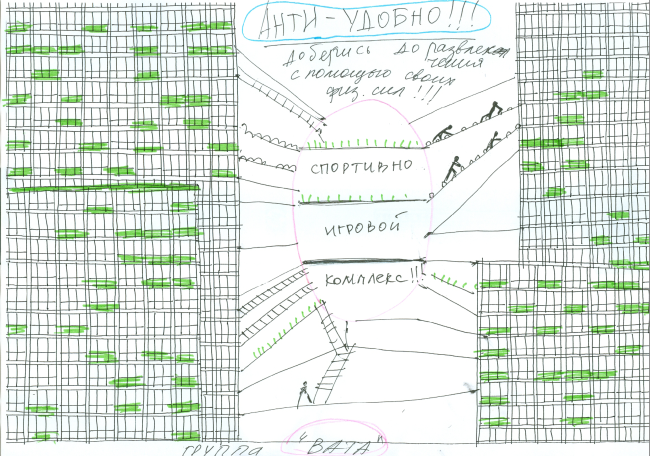 АНТИ-УДОБНО!!!
доберись до развлек
чения
с помощью своих
физ. сил!!!
СПОРТИВНО
ИГРОВОЙ
КОМПЛЕКС!!
ГРУППА "ВАТА"